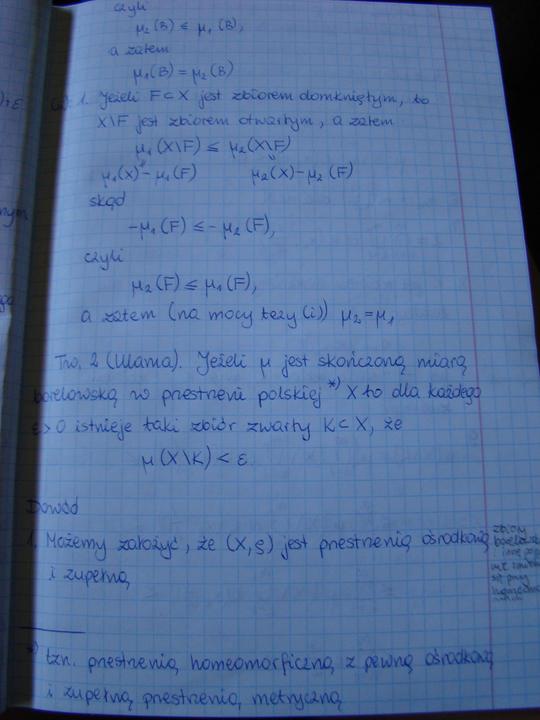 czyli
μ₂(B) ≤ μ₁(B),
a zatem
μ₁(B) = μ₂(B)
1. Jeżeli F⊂X jest zbiorem domkniętym, to
X\F jest zbiorem otwartym, a zatem
μ₁(X\F) ≤ μ₂(X\F)
μ₁(X) - μ₁(F) μ₂(X) - μ₂(F)
skąd
-μ₁(F) ≤ -μ₂(F),
czyli
μ₂(F) ≤ μ₁(F),
a zatem (na mocy tezy (i)) μ₂ = μ₁
Tw. 2 (Ulama). Jeżeli μ jest skończoną miarą
borelowską w przestrzeni polskiej *) X to dla każdego
ε > 0 istnieje taki zbiór zwarty K⊂X, że
μ(X\K) < ε.
Dowód
1. Możemy założyć, że (X,ϱ) jest przestrzenią ośrodkową
i zupełną
zbiory
borelowskie
się przy
*) tzn. przestrzenią homeomorficzną z pewną ośrodkową
i zupełną przestrzenią metryczną